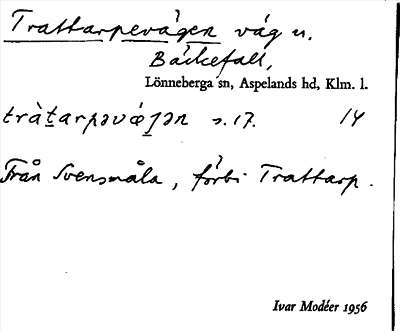 Trattarpevägen väg n.
Bäckefall,
Lönneberga sn, Aspelands hd, Klm. l.
tràt̲arpəvǽʒ̲ən s. 17. 14
Från Svensmåla, förbi Trattarp.
Ivar Modéer 1956